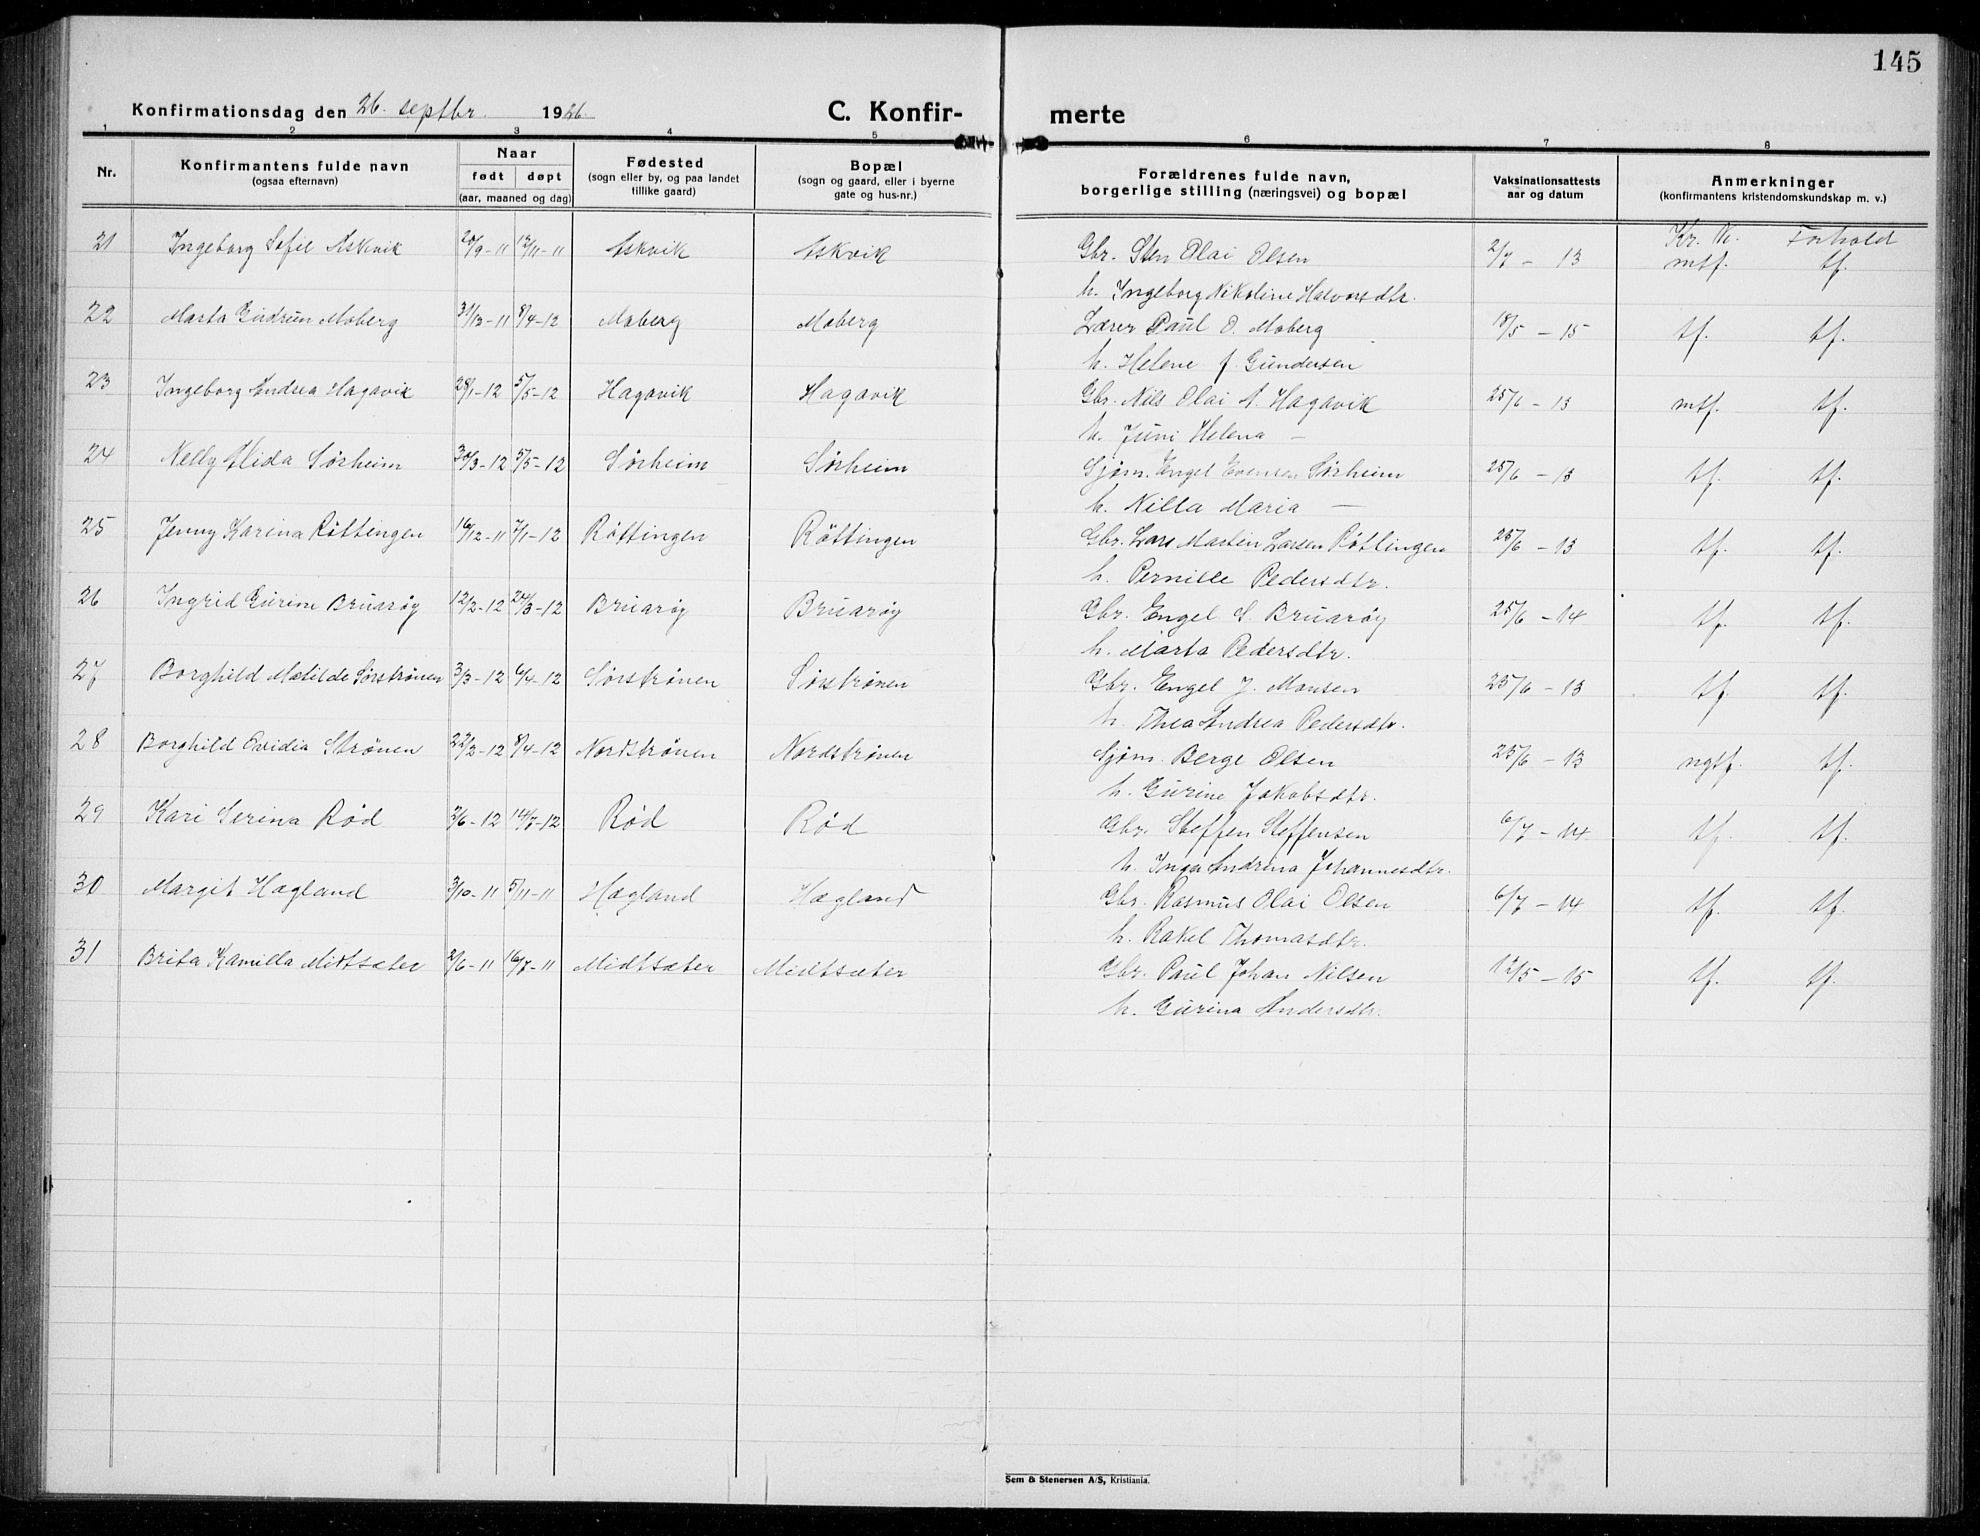 145
Konfirmationsdag den 26. septbr. 1926.
C. Konfir-merte
1 2 3 4 5 6 7 8
Nr.
Konfirmantens fulde navn
(ogsaa efternavn)
Naar
født døpt
(aar, maaned og dag)
Fødested
(sogn eller by, og paa landet
tillike gaard)
Bopæl
(sogn og gaard, eller i byerne
gate og hus-nr.)
Forældrenes fulde navn,
borgerlige stilling (næringsvei) og bopæl
Vaksinationsattests
aar og datum
Anmerkninger
(konfirmantens kristendomskundskap m. v.)
Kr. k. Forhold
21 Ingeborg Sofie Askvik 20/9-11 12/11-11 Askvik Askvik Gbr. Sten Olai Olsen 2/7 - 13 mtf. tf.
h. Ingeborg Nikoline Halvorsdtr.
22 Marta Gudrun Moberg 31/12-11 8/4-12 Moberg Moberg Lærer Paul O. Moberg 18/5 - 15 tf. tf.
h. Helene f. Gundersen
23 Ingeborg Andrea Hagavik 28/1-12 5/5-12 Hagavik Hagavik Gbr. Nils Olai A. Hagavik 25/6 - 13 mtf. tf.
h. Juni Helena -
24 Nelly Alida Sørheim 30/3-12 5/5-12 Sørheim Sørheim Sjøm. Engel Evensen Sørheim 25/6 - 13 tf. tf.
h. Nilla Maria -
25 Jenny Karina Røttingen 16/12-11 7/1-12 Røttingen Røttingen Gbr. Lars Martin Larsen Røttingen 25/6 - 13 tf. tf.
h. Pernille Pedersdtr.
26 Ingrid Gurine Bruarøy 12/2-12 24/3-12 Bruarøy Bruarøy Gbr. Engel S. Bruarøy 25/6 - 14 tf. tf.
h. Marta Pedersdtr.
27 Borghild Matilde Sørstrønen 3/3-12 6/4-12 Sørstrønen Sørstrønen Gbr. Engel J. Monsen 25/6 - 13 tf. tf.
h. Thea Andrea Pedersdtr.
28 Borghild Ovidia Strønen 22/2-12 8/4-12 Nordstrønen Nordstrønen Sjøm. Berge Olsen 25/6 - 13 ngtf. tf.
h. Gurine Jakobsdtr.
29 Kari Serina Rød 2/6-12 14/7-12 Rød Rød Gbr. Steffen Steffensen 6/7 - 14 tf. tf.
h. Inga Andrina Johannesdtr.
30 Margit Hægland 3/10-11 5/11-11 Hægland Hægland Gbr. Rasmus Olai Olsen 6/7 - 14 tf. tf.
h. Rakel Thomasdtr.
31 Brita Kamilla Midtsæter 2/6-11 16/7-11 Midtsæter Midtsæter Gbr. Paul Johan Nilsen 12/5 - 15 tf. tf.
h. Gurina Andersdtr.
Sem & Stenersen A/S, Kristiania.